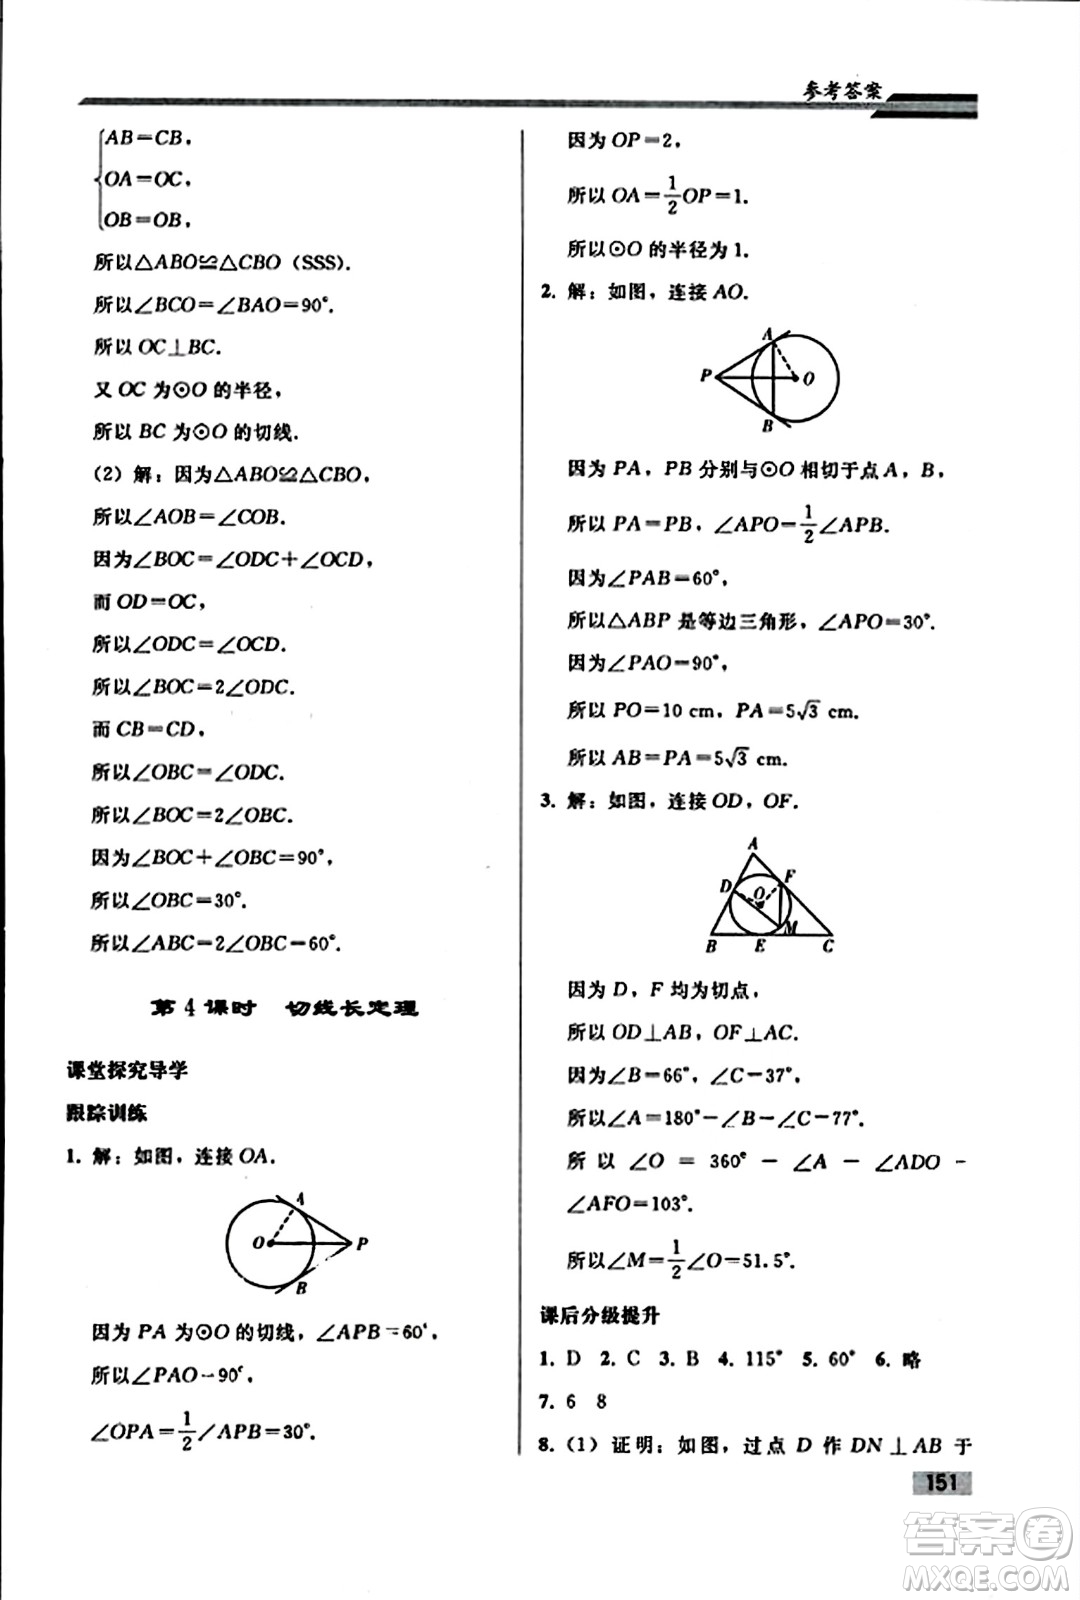 参考答案
AB=CB,
OA=OC,
OB=OB,
所以△ABO≌△CBO (SSS).
所以∠BCO=∠BAO=90°.
所以 OC⊥BC.
又 OC 为⊙O 的半径,
所以 BC 为⊙O 的切线.
(2) 解:因为△ABO≌△CBO,
所以∠AOB=∠COB.
因为∠BOC=∠ODC+∠OCD,
而 OD=OC,
所以∠ODC=∠OCD.
所以∠BOC=2∠ODC.
而 CB=CD,
所以∠OBC=∠ODC.
所以∠BOC=2∠OBC.
因为∠BOC+∠OBC=90°,
所以∠OBC=30°.
所以∠ABC=2∠OBC=60°.
第 4 课时 切线长定理
课堂探究导学
跟踪训练
1. 解:如图,连接 OA.
A
O
P
B
因为 PA 为⊙O 的切线,∠APB=60°,
所以∠PAO=90°.
∠OPA=1/2∠APB=30°.
因为 OP=2,
所以 OA=1/2OP=1.
所以⊙O 的半径为 1.
2. 解:如图,连接 AO.
A
P
O
B
因为 PA, PB 分别与⊙O 相切于点 A, B,
所以 PA=PB, ∠APO=1/2∠APB.
因为∠PAB=60°,
所以△ABP 是等边三角形,∠APO=30°.
因为∠PAO=90°,
所以 PO=10 cm, PA=5√3 cm.
所以 AB=PA=5√3 cm.
3. 解:如图,连接 OD, OF.
A
D
F
O
M
B
E
C
因为 D, F 均为切点,
所以 OD⊥AB, OF⊥AC.
因为∠B=66°, ∠C=37°,
所以∠A=180°-∠B-∠C=77°.
所以 ∠O = 360° - ∠A - ∠ADO -
∠AFO=103°.
所以∠M=1/2∠O=51.5°.
课后分级提升
1. D 2. C 3. B 4. 115° 5. 60° 6. 略
7. 6 8
8. (1) 证明:如图,过点 D 作 DN⊥AB 于
151
答案卷
MXQE.COM